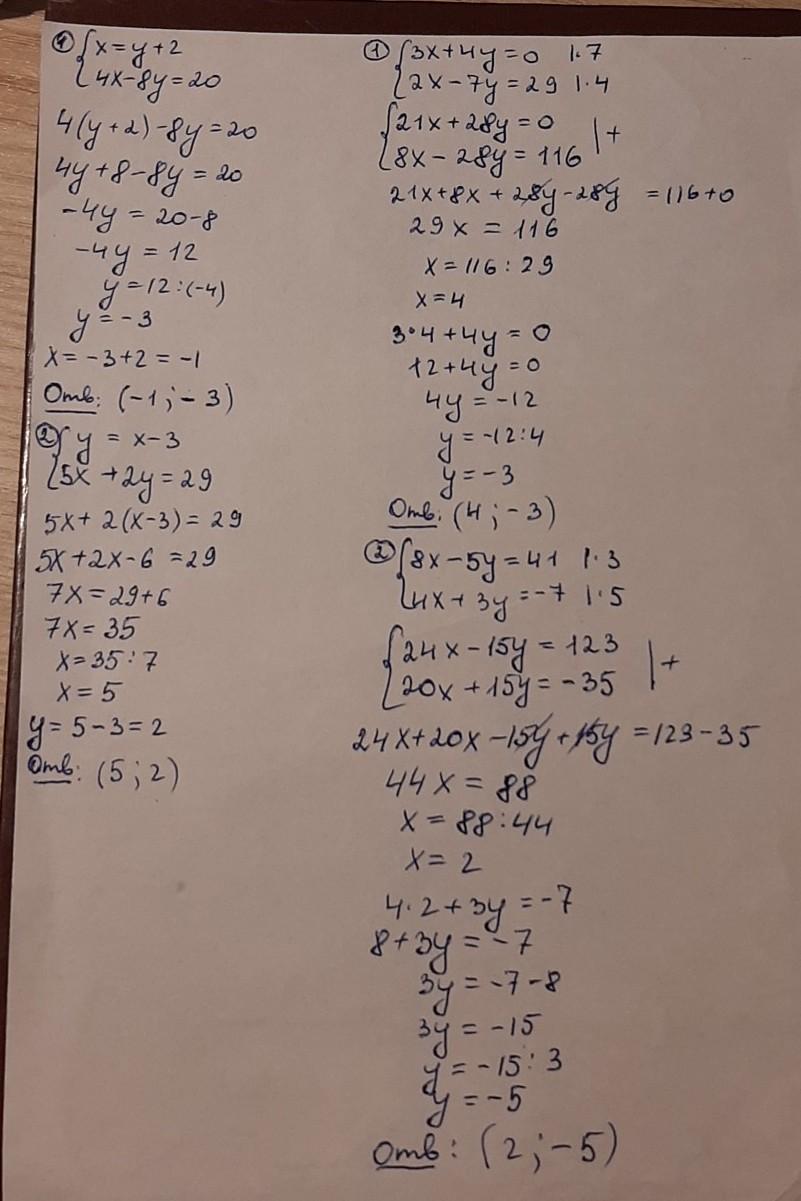 ① { x=y+2
4x-8y=20
4(y+2)-8y=20
4y+8-8y=20
-4y=20-8
-4y=12
y=12:(-4)
y=-3
x=-3+2=-1
Отв: (-1;-3)
② { y=x-3
5x+2y=29
5x+2(x-3)=29
5x+2x-6=29
7x=29+6
7x=35
x=35:7
x=5
y=5-3=2
Отв: (5;2)
① { 3x+4y=0 |·7
2x-7y=29 |·4
{ 21x+28y=0
8x-28y=116 |+
21x+8x+28y-28y=116+0
29x=116
x=116:29
x=4
3·4+4y=0
12+4y=0
4y=-12
y=-12:4
y=-3
Отв: (4;-3)
② { 8x-5y=41 |·3
4x+3y=-7 |·5
{ 24x-15y=123
20x+15y=-35 |+
24x+20x-15y+15y=123-35
44x=88
x=88:44
x=2
4·2+3y=-7
8+3y=-7
3y=-7-8
3y=-15
y=-15:3
y=-5
Отв: (2;-5)